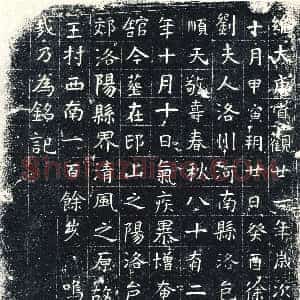 維大唐貞觀廿一年歲次
十月甲寅朔廿日癸酉徐
劉夫人洛州河南縣洛邑
順天敬春秋八十有二
年十月十日氣疾暴增奄
舘今塟在邙上之陽洛邑
郊洛陽縣界清風之原
王村西南一百餘步嗚
哉乃為銘記